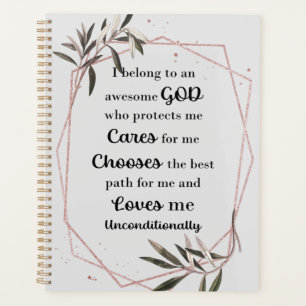 I belong to an
awesome GOD
who protects me
Cares for me
Chooses the best
path for me and
Loves me
Unconditionally